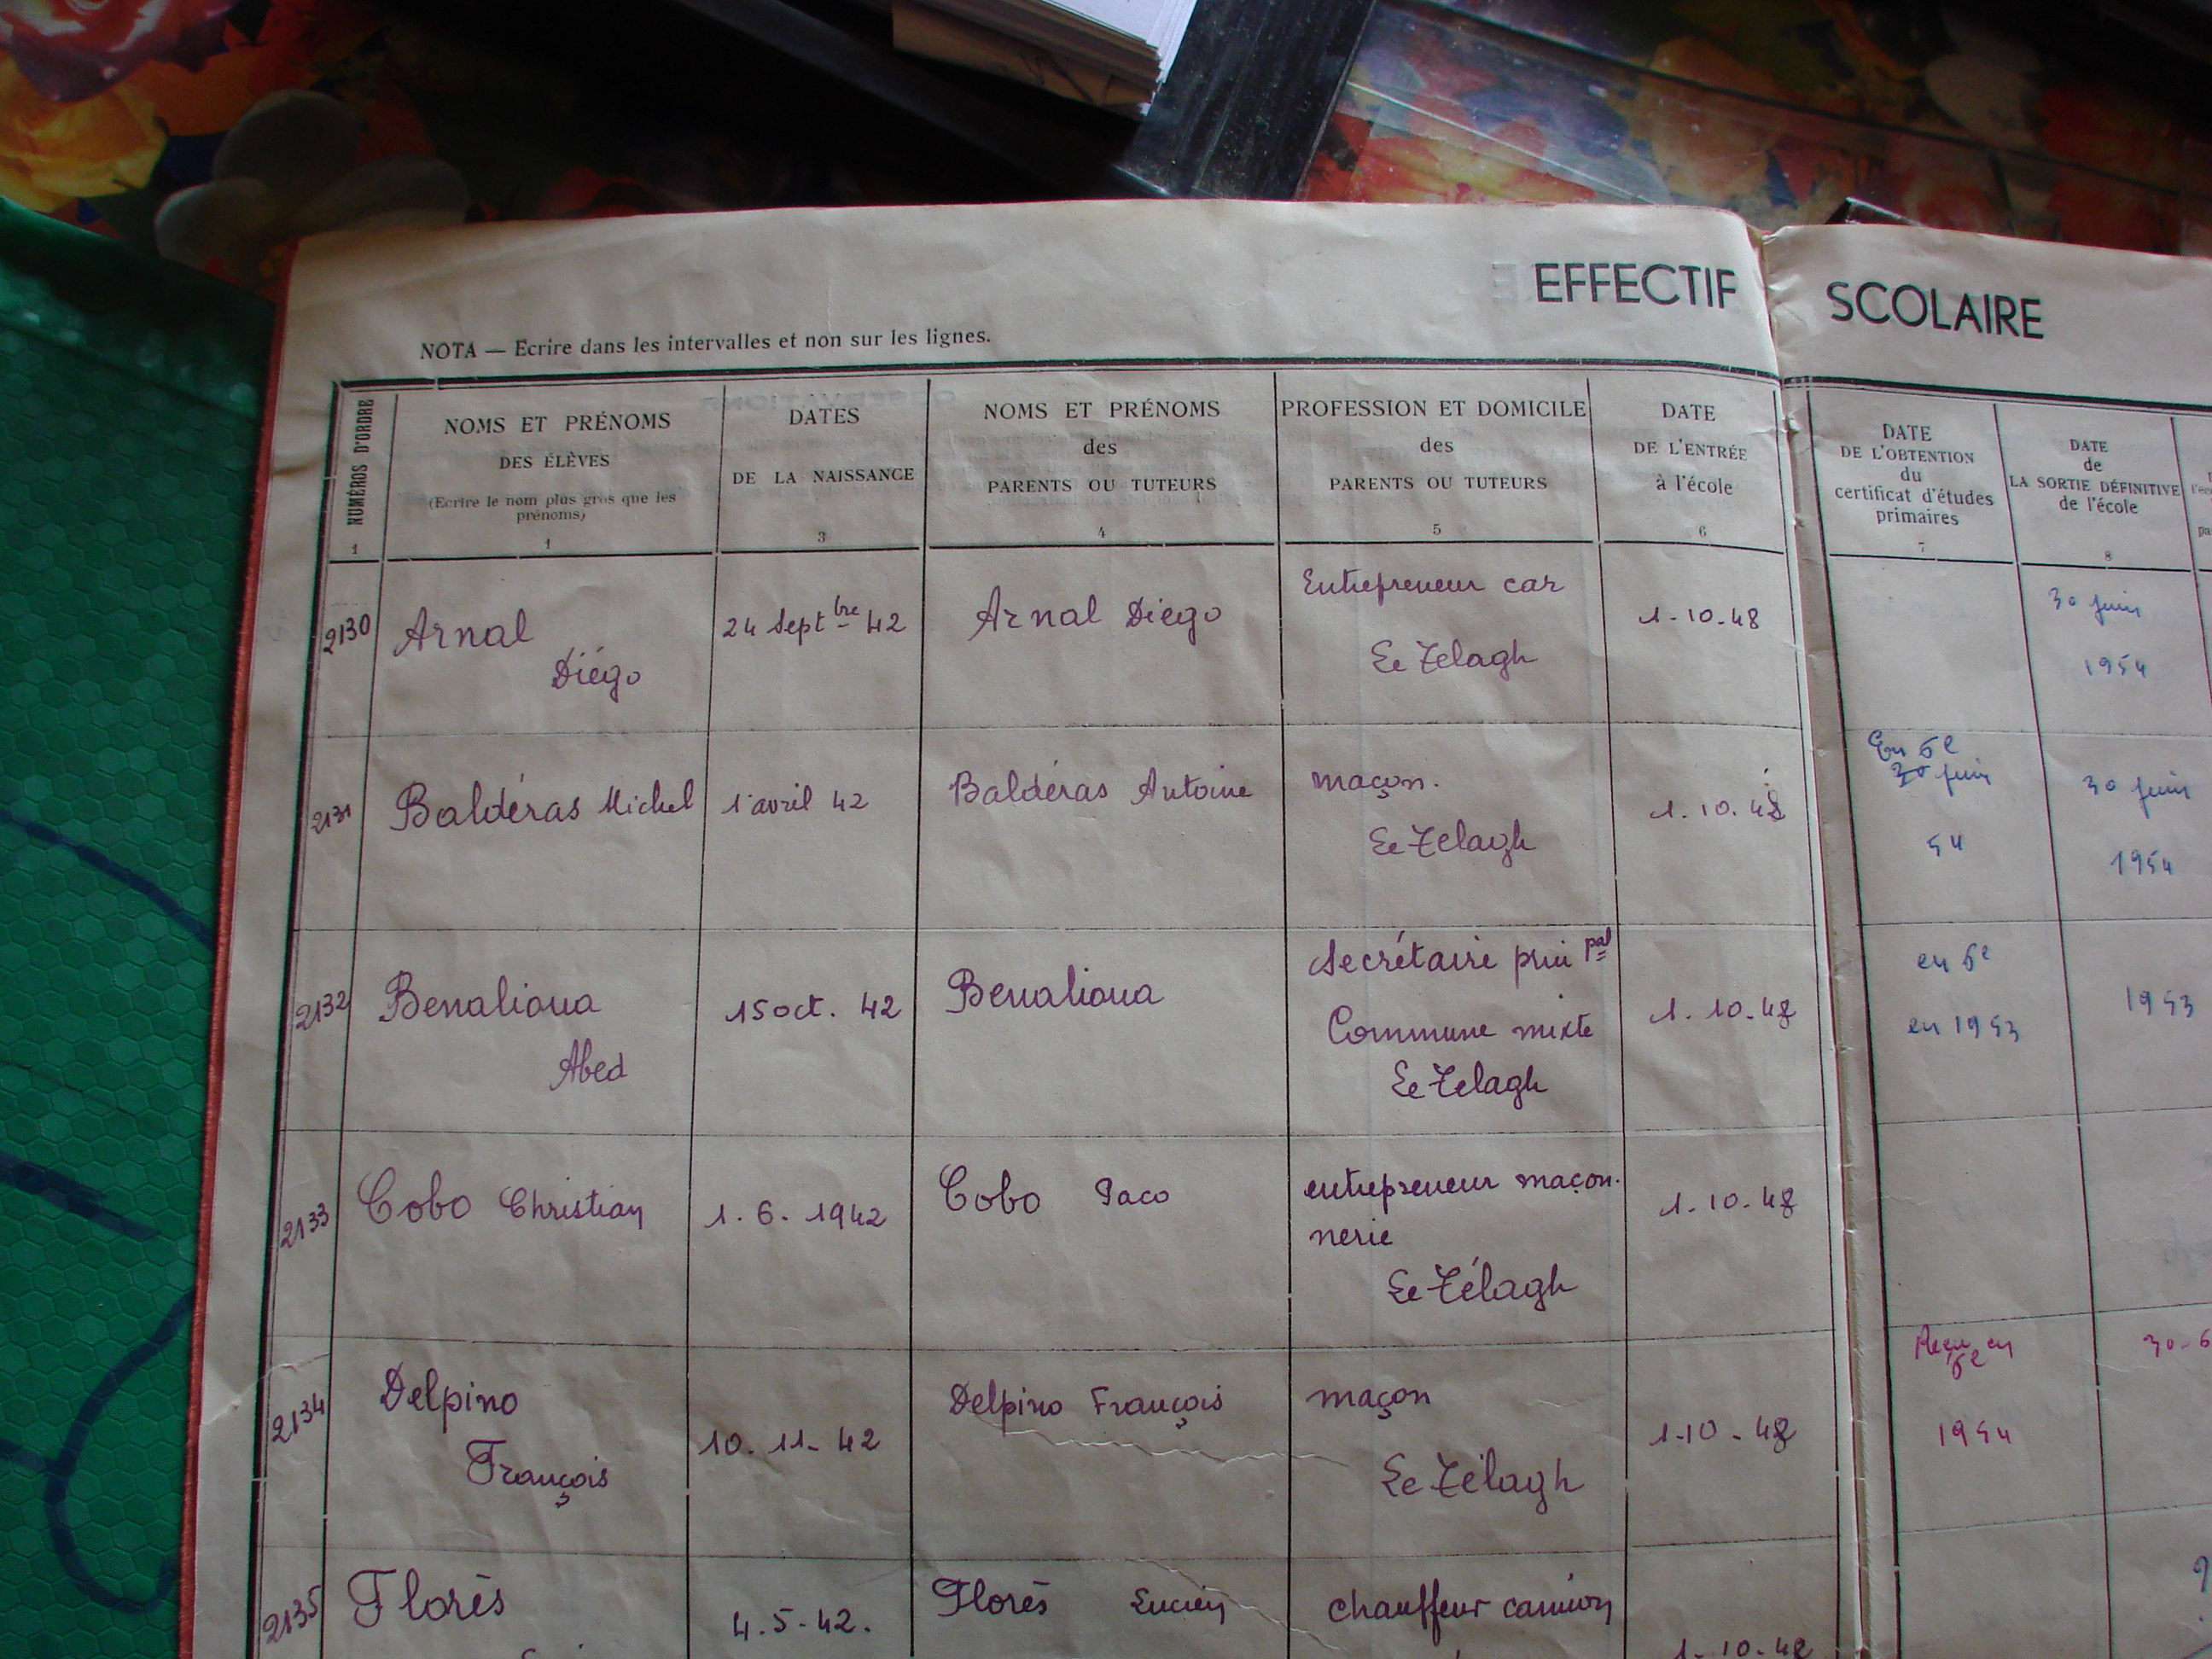 EFFECTIF SCOLAIRE
NOTA — Ecrire dans les intervalles et non sur les lignes.
NUMÉROS D'ORDRE
1
NOMS ET PRÉNOMS
DES ÉLÈVES
(Ecrire le nom plus gros que les
prénoms)
1
DATES
DE LA NAISSANCE
3
NOMS ET PRÉNOMS
des
PARENTS OU TUTEURS
4
PROFESSION ET DOMICILE
des
PARENTS OU TUTEURS
5
DATE
DE L'ENTRÉE
à l'école
6
DATE
DE L'OBTENTION
du
certificat d'études
primaires
7
DATE
de
LA SORTIE DÉFINITIVE
de l'école
8
2130
Arnal
Diégo
24 Septbre 42
Arnal Diégo
Entrepreneur car
Le Telagh
1-10-48
30 juin
1954
2131
Baldéras Michel
1 avril 42
Baldéras Antoine
maçon.
Le Telagh
1.10.48
En 6e
30 juin
54
30 juin
1954
2132
Benalioua
Abed
15 oct. 42
Benalioua
Secrétaire prinpal
Commune mixte
Le Telagh
1.10-48
en 6e
en 1953
1953
2133
Cobo Christian
1.6.1942
Cobo Paco
entrepreneur maçon-
nerie
Le Télagh
1-10-48
2134
Delpino
François
10.11-42
Delpino François
maçon
Le Télagh
1-10-48
Reçu en
6e
1954
30-6
2135
Florès
4.5-42.
Florès Lucien
chauffeur camion
1-10-48